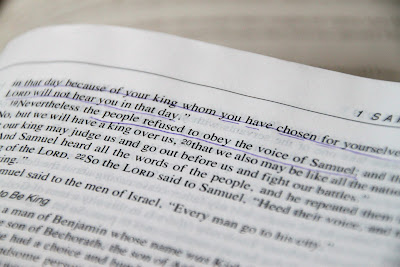 1 SA
in that day because of your king whom you have chosen for yourselve
LORD will not hear you in that day."
19Nevertheless the people refused to obey the voice of Samuel; and
No, but we will have a king over us, 20that we also may be like all the nati
our king may judge us and go out before us and fight our battles."
And Samuel heard all the words of the people, and he repeated them
g of the LORD. 22So the LORD said to Samuel, "Heed their voice, and
ing."
muel said to the men of Israel, "Every man go to his city."
to Be King
a man of Benjamin whose name was Kish
son of Bechorath, the son of
had a choice and
ndsome person